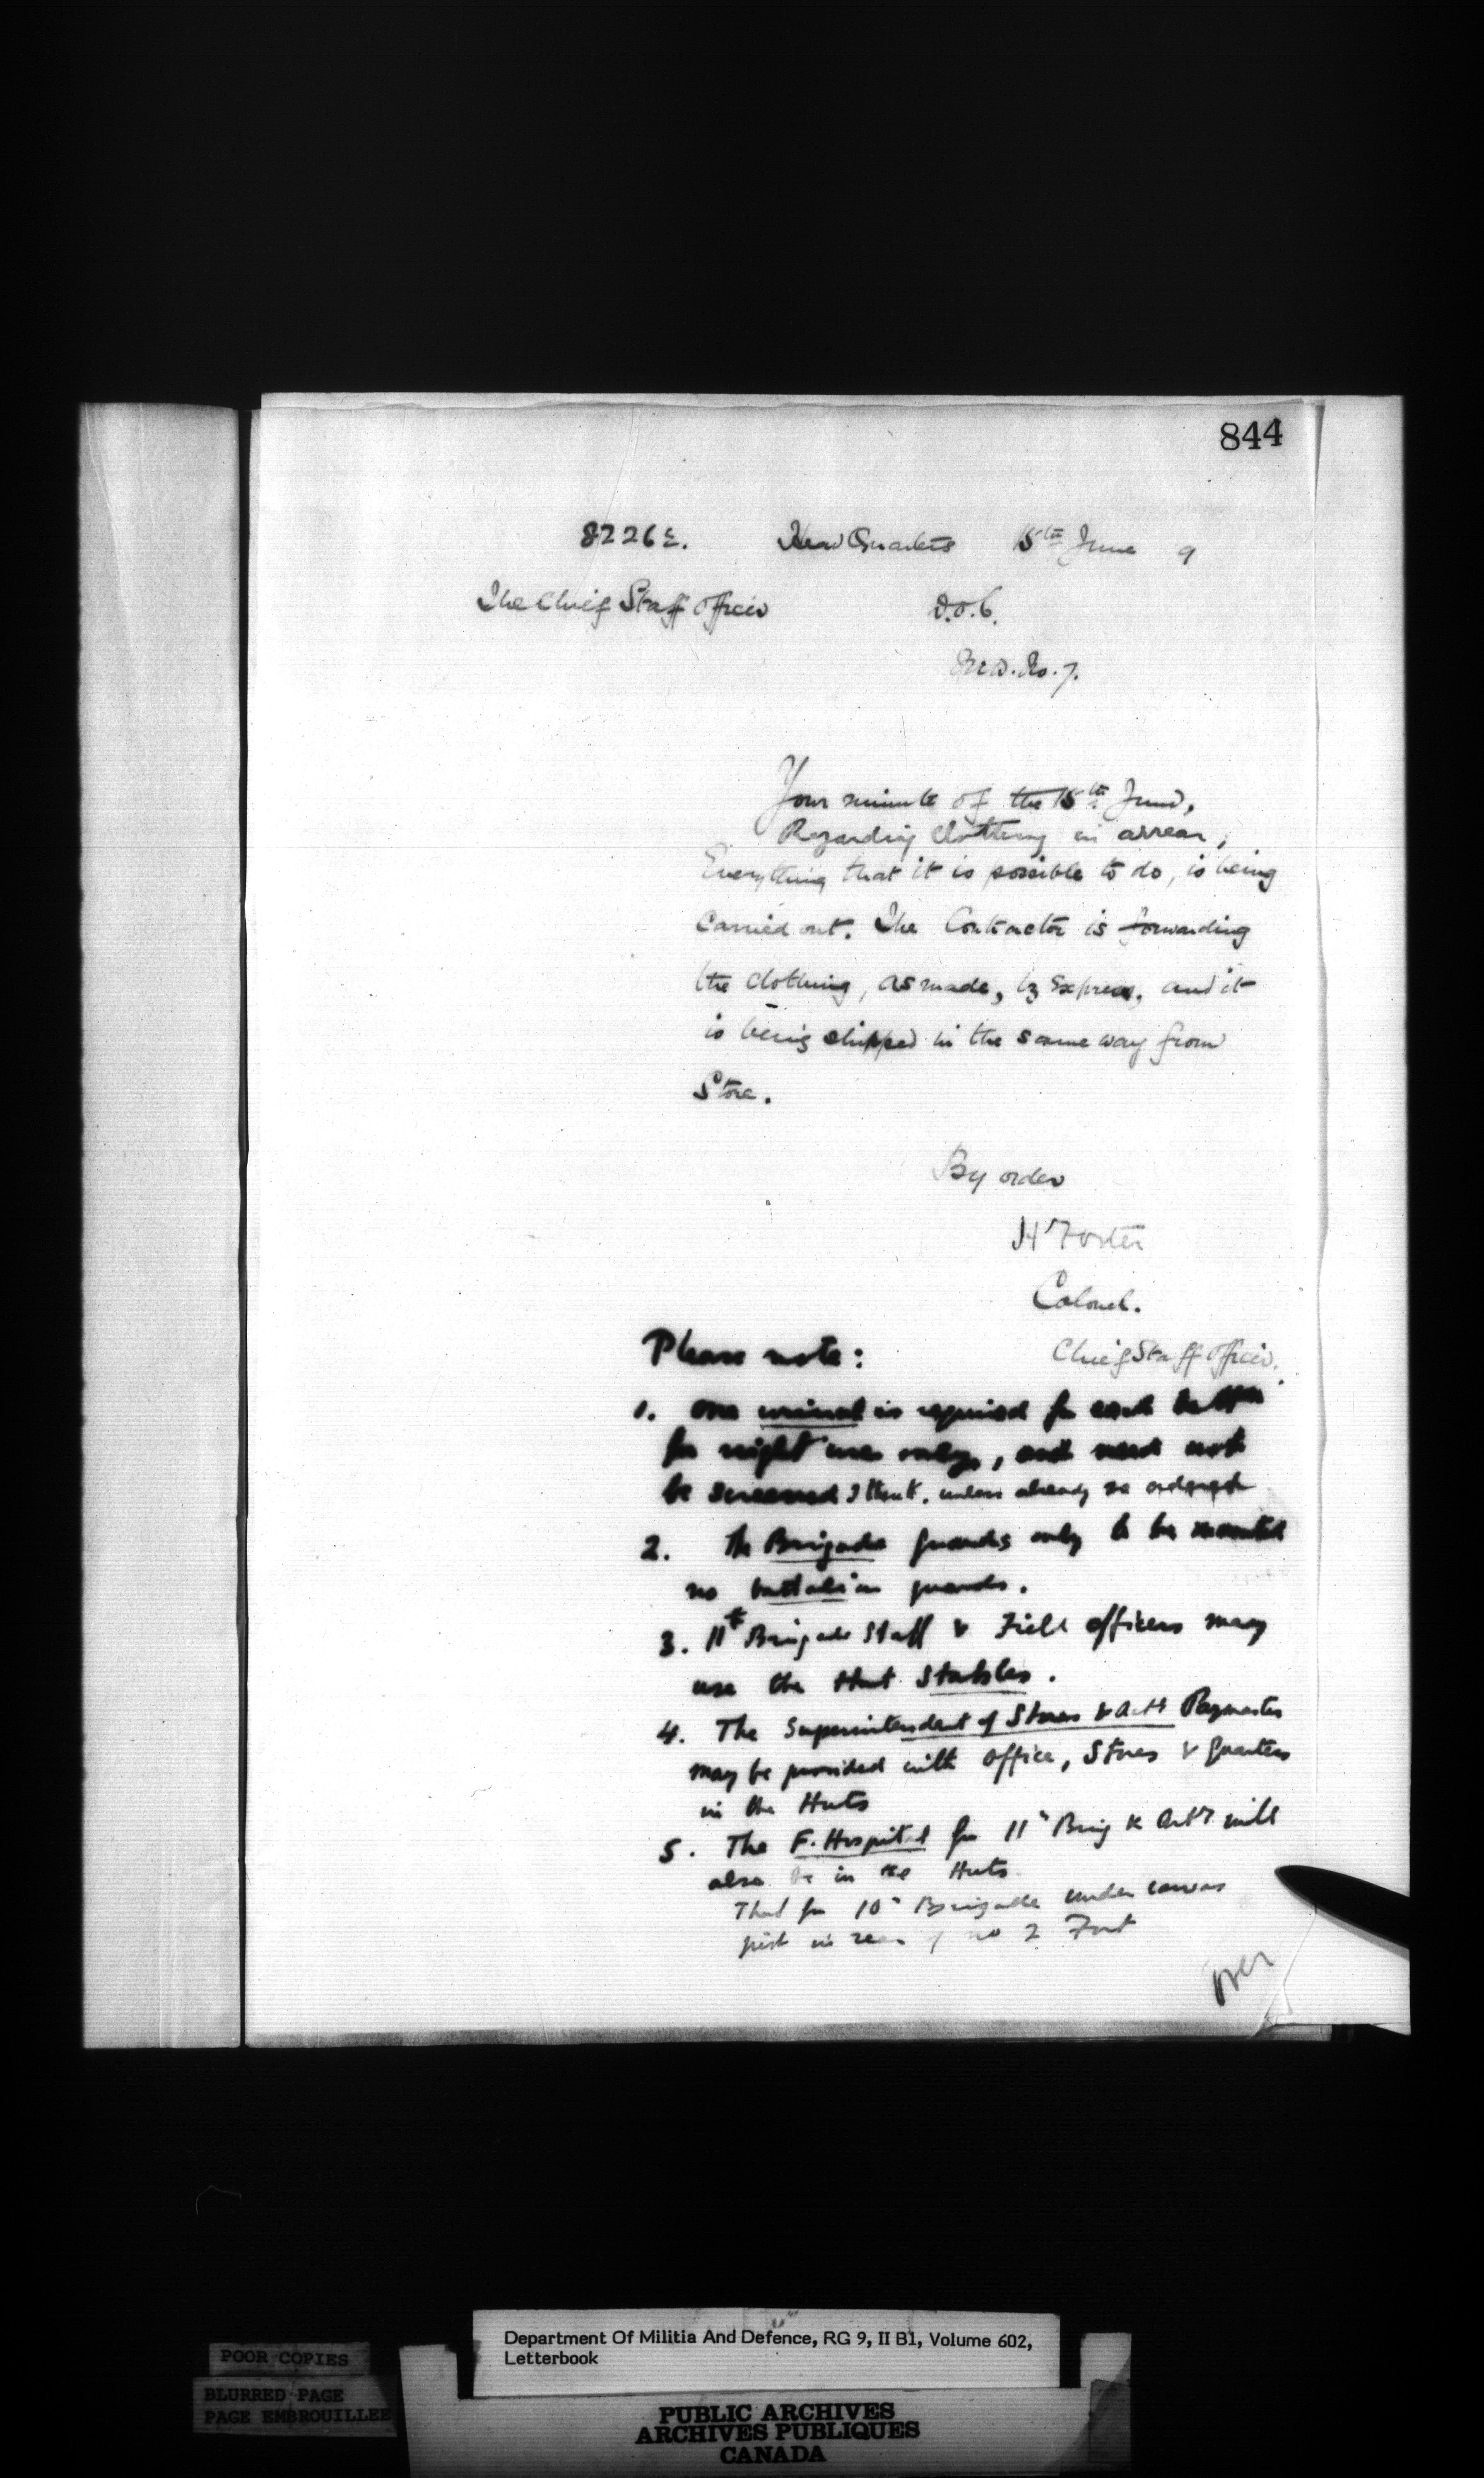 844
8226 Head Quarters 15th June 9
The Chief Staff Officer D.O.C.
No. 7.
Your minute of the 15th June,
Regarding Clothing in arrear,
Everything that it is possible to do, is being
Carried out. The Contractor is forwarding
the Clothing, as made, by Express, and it
is being shipped in the same way from
Store.
By order
H Foster
Colonel.
Chief Staff Officer.
Please note:
1. One urinal is required for each
for night use only, and need not
be screened I think. unless already so
2. The Brigade guards only to be mounted
no battalion guards.
3. 11th Brigade Staff & Field officers may
use the Hut Stables.
4. The Superintendent of Stores & Paymaster
may be provided with office, Stores & Quarters
in the Huts
5. The F. Hospital for 11" Brig will
also be in the Huts
That for 10" Brigade under canvas
just in rear of no 2 Fort
over
Department Of Militia And Defence, RG 9, II B1, Volume 602,
Letterbook
POOR COPIES
BLURRED PAGE
PAGE EMBROUILLEE
PUBLIC ARCHIVES
ARCHIVES PUBLIQUES
CANADA